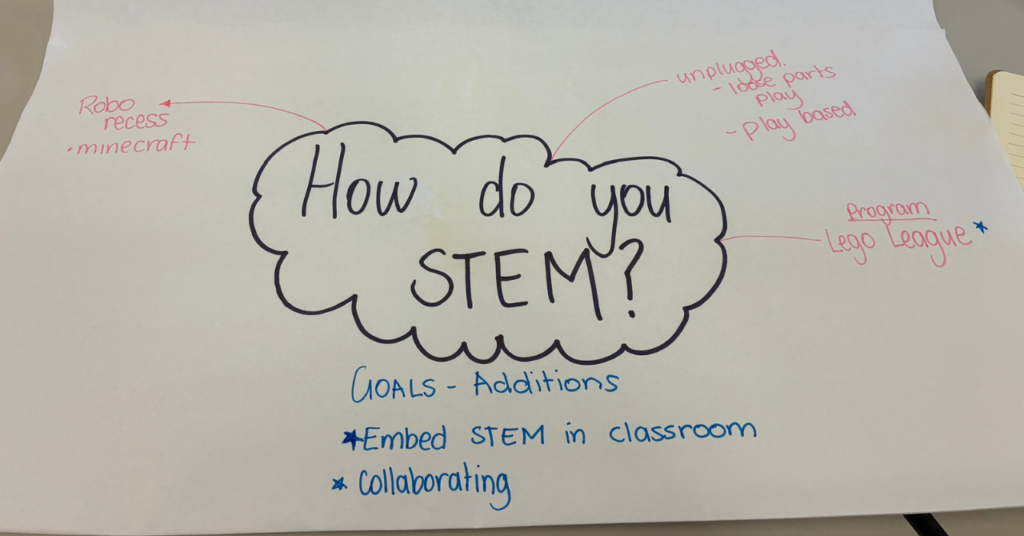 Robo
recess
• minecraft
unplugged.
- loose parts
play
- play based
How do you
STEM?
Program
Lego League *
GOALS - Additions
* Embed STEM in classroom
* Collaborating